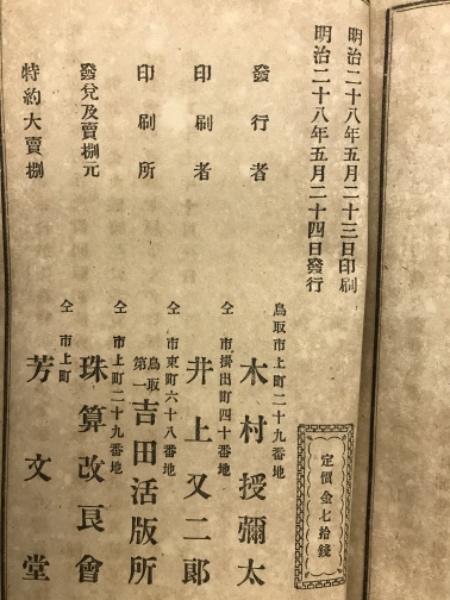 明治二十八年五月二十三日印刷
明治二十八年五月二十四日發行
定價金七拾錢
鳥取市上町二十九番地
發行者 木村授彌太
仝市掛出町四十番地
印刷者 井上又二郎
仝市東町六十八番地
印刷所 鳥取第一吉田活版所
仝市上町二十九番地
發兌及賣捌元 珠算改良會
仝市上町
特約大賣捌 芳文堂